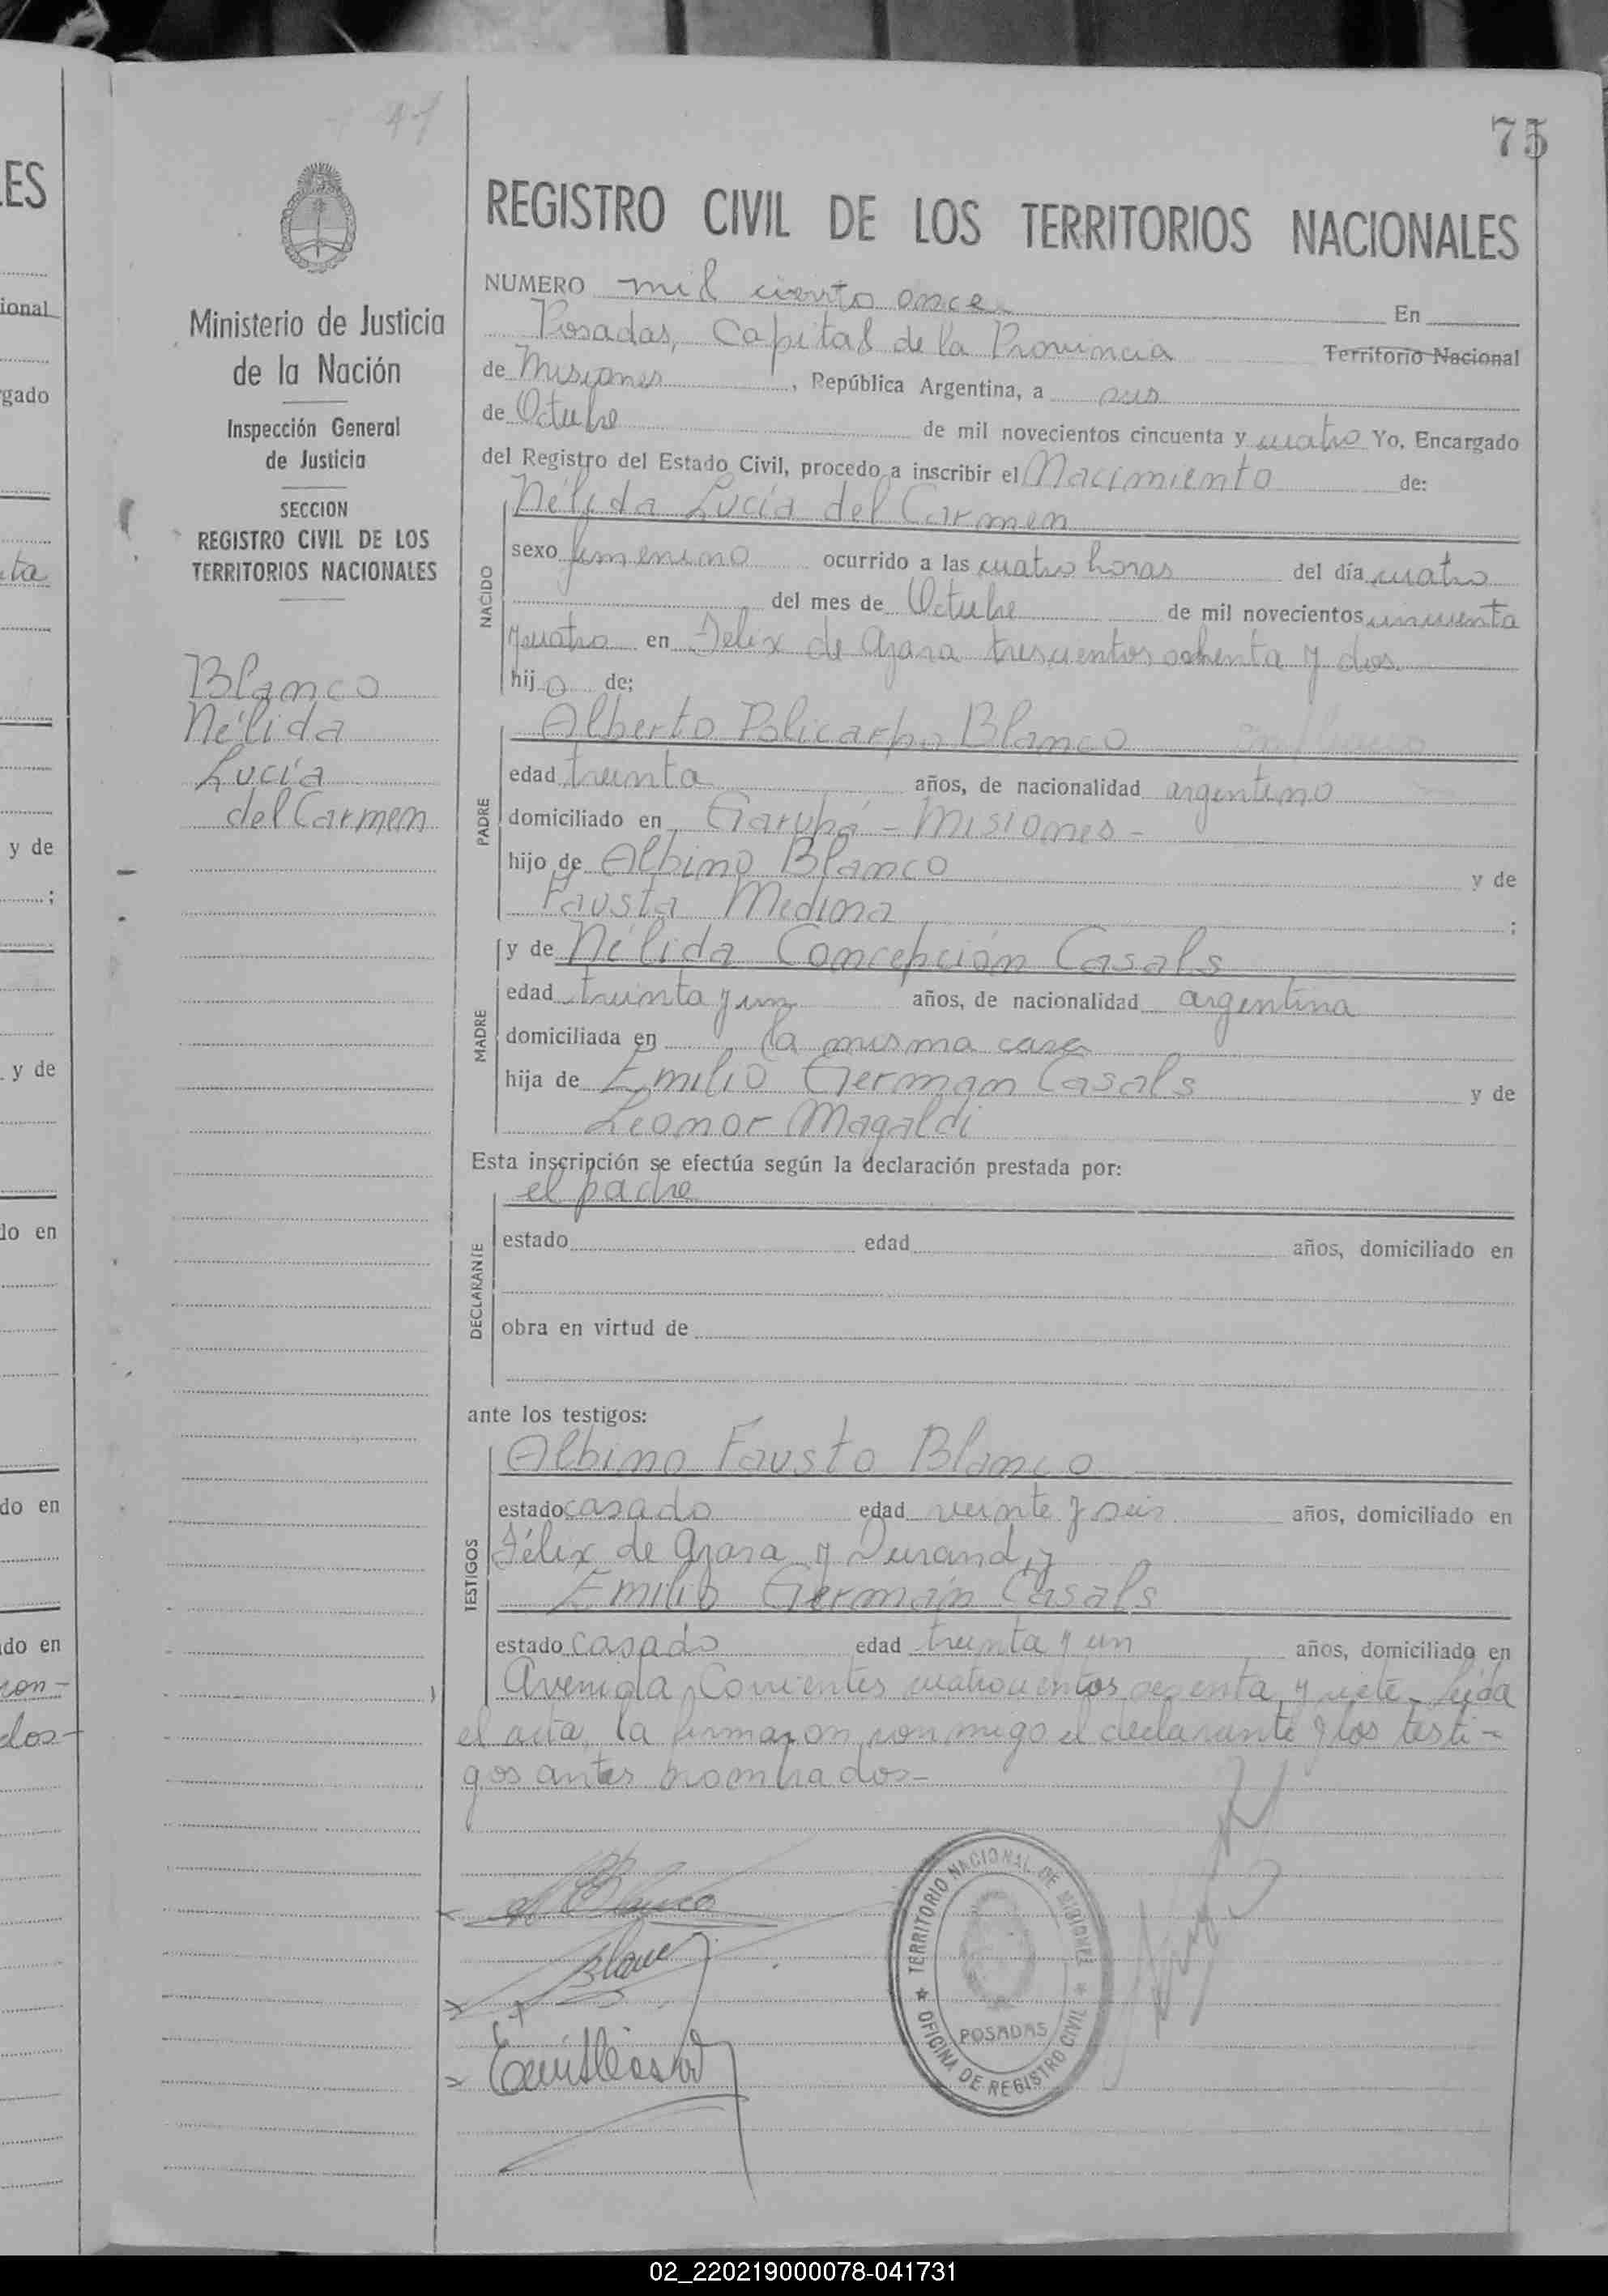 75
REGISTRO CIVIL DE LOS TERRITORIOS NACIONALES
NUMERO mil ciento once En
Posadas, Capital de la Provincia Territorio Nacional
de Misiones, República Argentina, a seis
de Octubre de mil novecientos cincuenta y cuatro Yo, Encargado
del Registro del Estado Civil, procedo a inscribir el Nacimiento de:
NACIDO
Nélida Lucía del Carmen
sexo femenino ocurrido a las cuatro horas del día cuatro
del mes de Octubre de mil novecientos cincuenta
y cuatro en Felix de Azara trescientos ochenta y dos.
hijo de:
PADRE
Alberto Policarpo Blanco
edad treinta años, de nacionalidad argentino
domiciliado en Garupá - Misiones -
hijo de Albino Blanco y de
Fausta Medina ;
MADRE
y de Nélida Concepción Casals
edad treinta y un años, de nacionalidad argentina
domiciliada en la misma casa
hija de Emilio German Casals y de
Leonor Magaldi
Esta inscripción se efectúa según la declaración prestada por:
DECLARANTE
el padre
estado edad años, domiciliado en
obra en virtud de
ante los testigos:
TESTIGOS
Albino Fausto Blanco
estado casado edad veinte y seis años, domiciliado en
Félix de Azara y Durand, y
Emilio Germán Casals
estado casado edad treinta y un años, domiciliado en
Avenida Corrientes cuatrocientos sesenta y siete. Leída
el acta, la firmaron conmigo el declarante y los testi-
gos antes nombrados-
Blanco
Blanco
TERRITORIO NACIONAL DE MISIONES
POSADAS
OFICINA DE REGISTRO CIVIL
Ministerio de Justicia
de la Nación
Inspección General
de Justicia
SECCION
REGISTRO CIVIL DE LOS
TERRITORIOS NACIONALES
Blanco
Nélida
Lucía
del Carmen
ES
ional
gado
ta
y de
;
y de
do en
do en
do en
con-
dos-
02_220219000078-041731